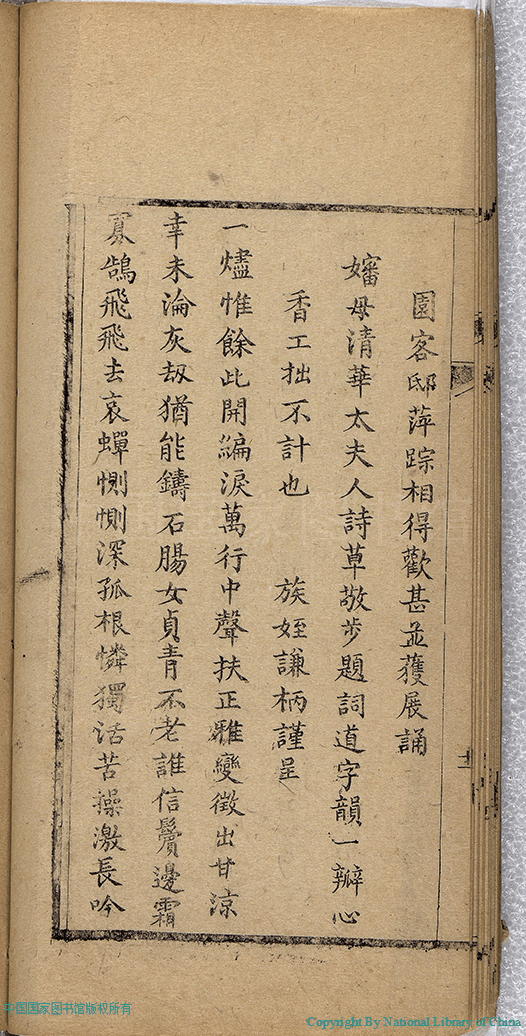 園客邸萍踪相得歡甚並獲展誦
嬸母清華太夫人詩草敬步題詞道字韻一瓣心
香工拙不計也　族姪謙柄謹呈
一燼惟餘此開編淚萬行中聲扶正雅變徵出甘涼
幸未淪灰刼猶能鑄石腸女貞青不老誰信鬢邊霜
寡鵠飛飛去哀蟬惻惻深孤根憐獨活苦操激長吟
中国国家图书馆版权所有
Copyright By National Library of China